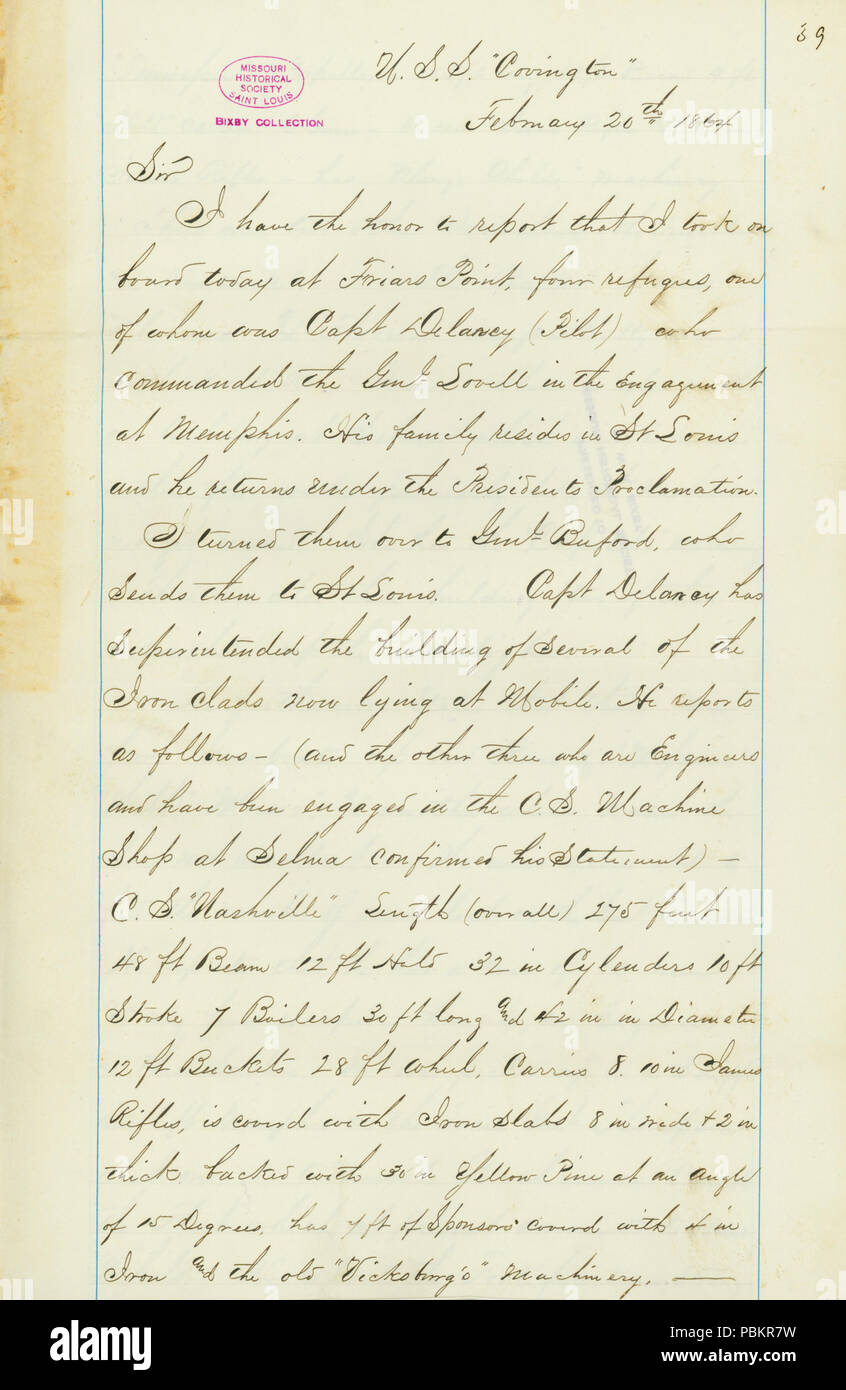 39
MISSOURI
HISTORICAL
SOCIETY
SAINT LOUIS
BIXBY COLLECTION
U. S. S. "Covington"
February 20th 1864
Sir
I have the honor to report that I took on
board today at Friars Point, four refugees, one
of whom was Capt Delancy (Pilot) who
commanded the Genl Lovell in the Engagement
at Memphis. His family resides in St Louis
and he returns under the Presidents Proclamation.
I turned them over to Genl Buford, who
sends them to St Louis. Capt Delancy has
superintended the building of several of the
Iron clads now lying at Mobile. He reports
as follows – (and the other three who are Engineers
and have been engaged in the C. S. Machine
Shop at Selma confirmed his statement) –
C. S. "Nashville" Length (over all) 275 feet
48 ft Beam 12 ft Hold 32 in Cylenders 10 ft
Stroke 7 Boilers 30 ft long and 42 in in Diameter
12 ft Buckets 28 ft wheel, Carries 8. 10 in James
Rifles, is coverd with Iron Slabs 8 in wide & 2 in
thick backed with 30 in Yellow Pine at an angle
of 15 Degrees. has 7 ft of Sponsors coverd with 4 in
Iron and the old "Vicksburg's" Machinery. —
alamy
Image ID: PBKR7W
www.alamy.com